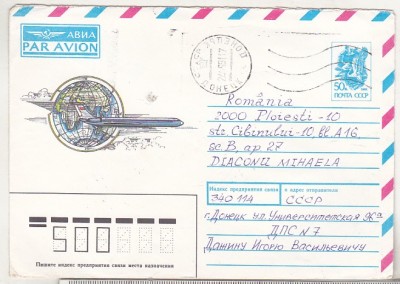 АВИА
PAR AVION
ДОНЕЦК
50 к
ПОЧТА СССР
România
2000 Ploiești-10
str. Cibinului-10, bl. A16,
sc. B, ap. 27
DIACONU MIHAELA
Индекс предприятия связи и адрес отправителя
340114 СССР
г. Донецк ул. Университетская
ДПС N7
Дажину Игорю Васильевичу
500
Пишите индекс предприятия связи места назначения